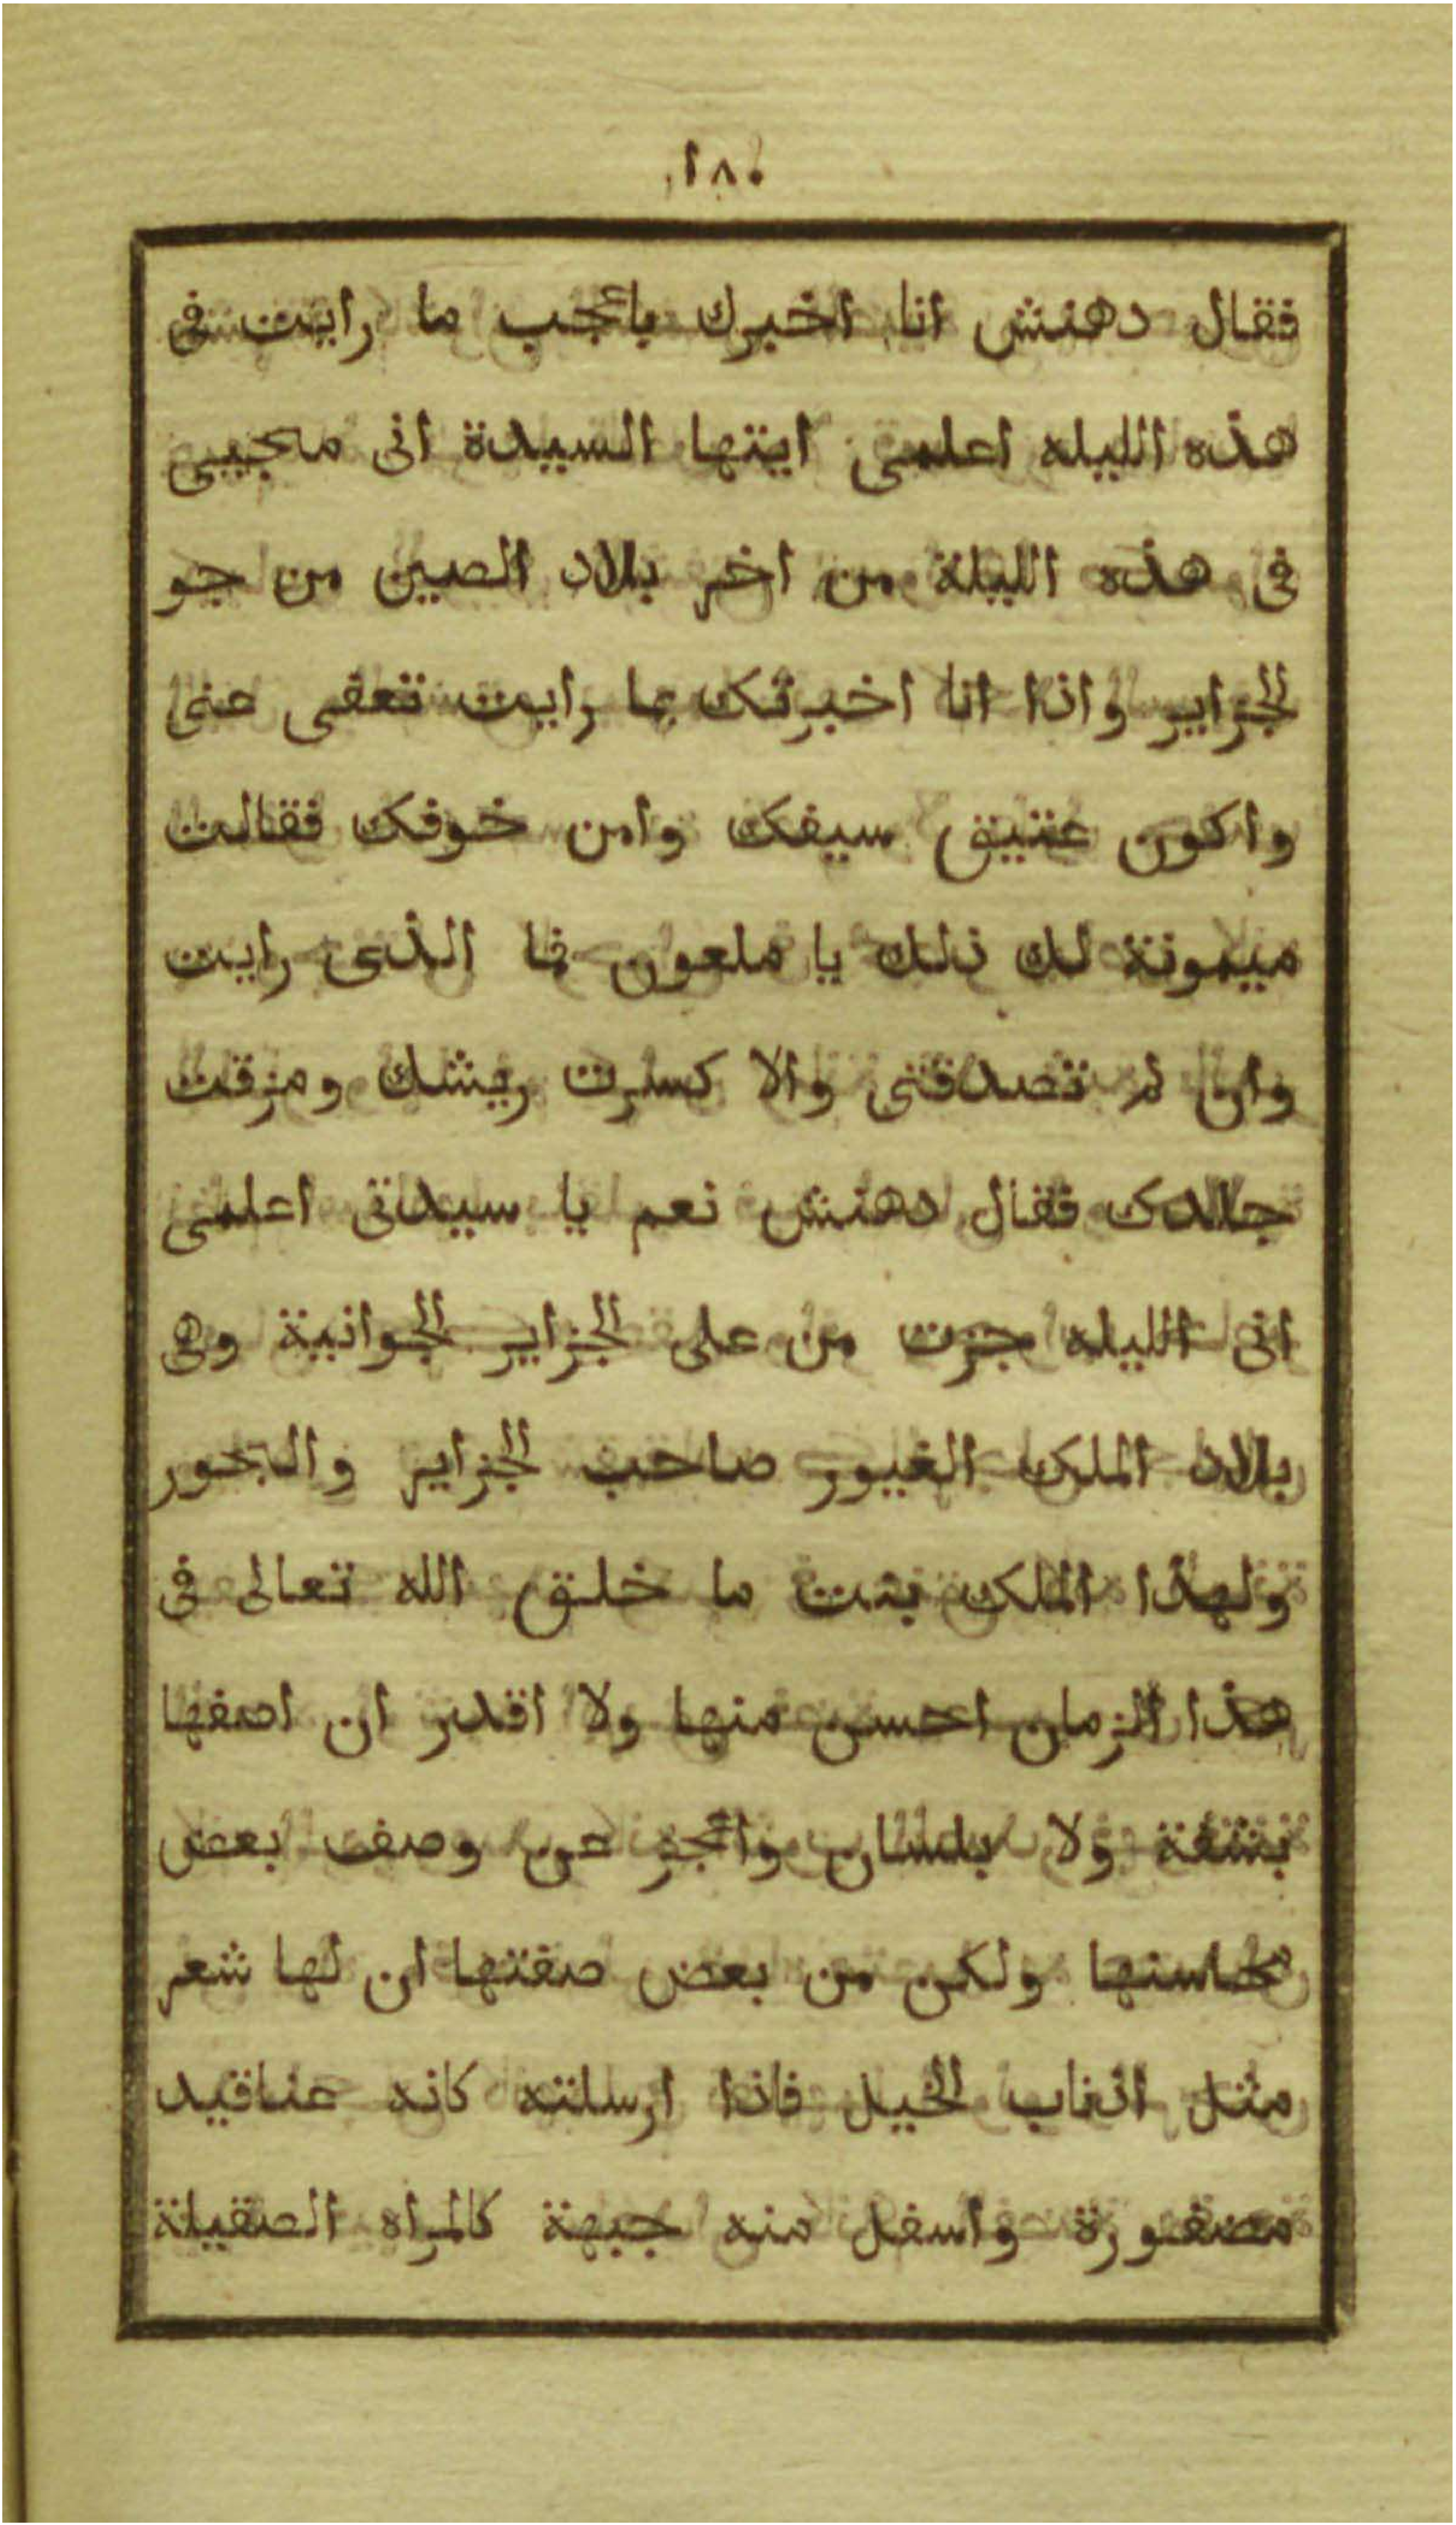 ١٨٠
فقال دهنش انا اخبرك باعجب ما رايت فى
هذه الليله اعلمى ايتها السيدة انى مجيبى
فى هذه الليلة من اخر بلاد الصين من جو
الجزاير واذا انا اخبرتك بما رايت تعفى عنى
واكون عتيق سيفك وامن خوفك فقالت
ميمونة لك ذلك يا ملعون فما الذى رايت
وان لم تصدقنى والا كسرت ريشك ومزقت
جالدك فقال دهنش نعم يا سيدتى اعلمى
انى الليله جزت من على الجزاير الجوانية وهى
بلاد الملك الغيور صاحب الجزاير والبحور
ولهذا الملك بنت ما خلق الله تعالى فى
هذا الزمان احسن منها ولا اقدر ان اصفها
بشفة ولا بلسان واعجز عن وصف بعض
محاسنها ولكن من بعض صفتها ان لها شعر
مثل اذناب الخيل فاذا ارسلته كانه عناقيد
مضفورة واسفل منه جبهة كالمراه الصقيلة